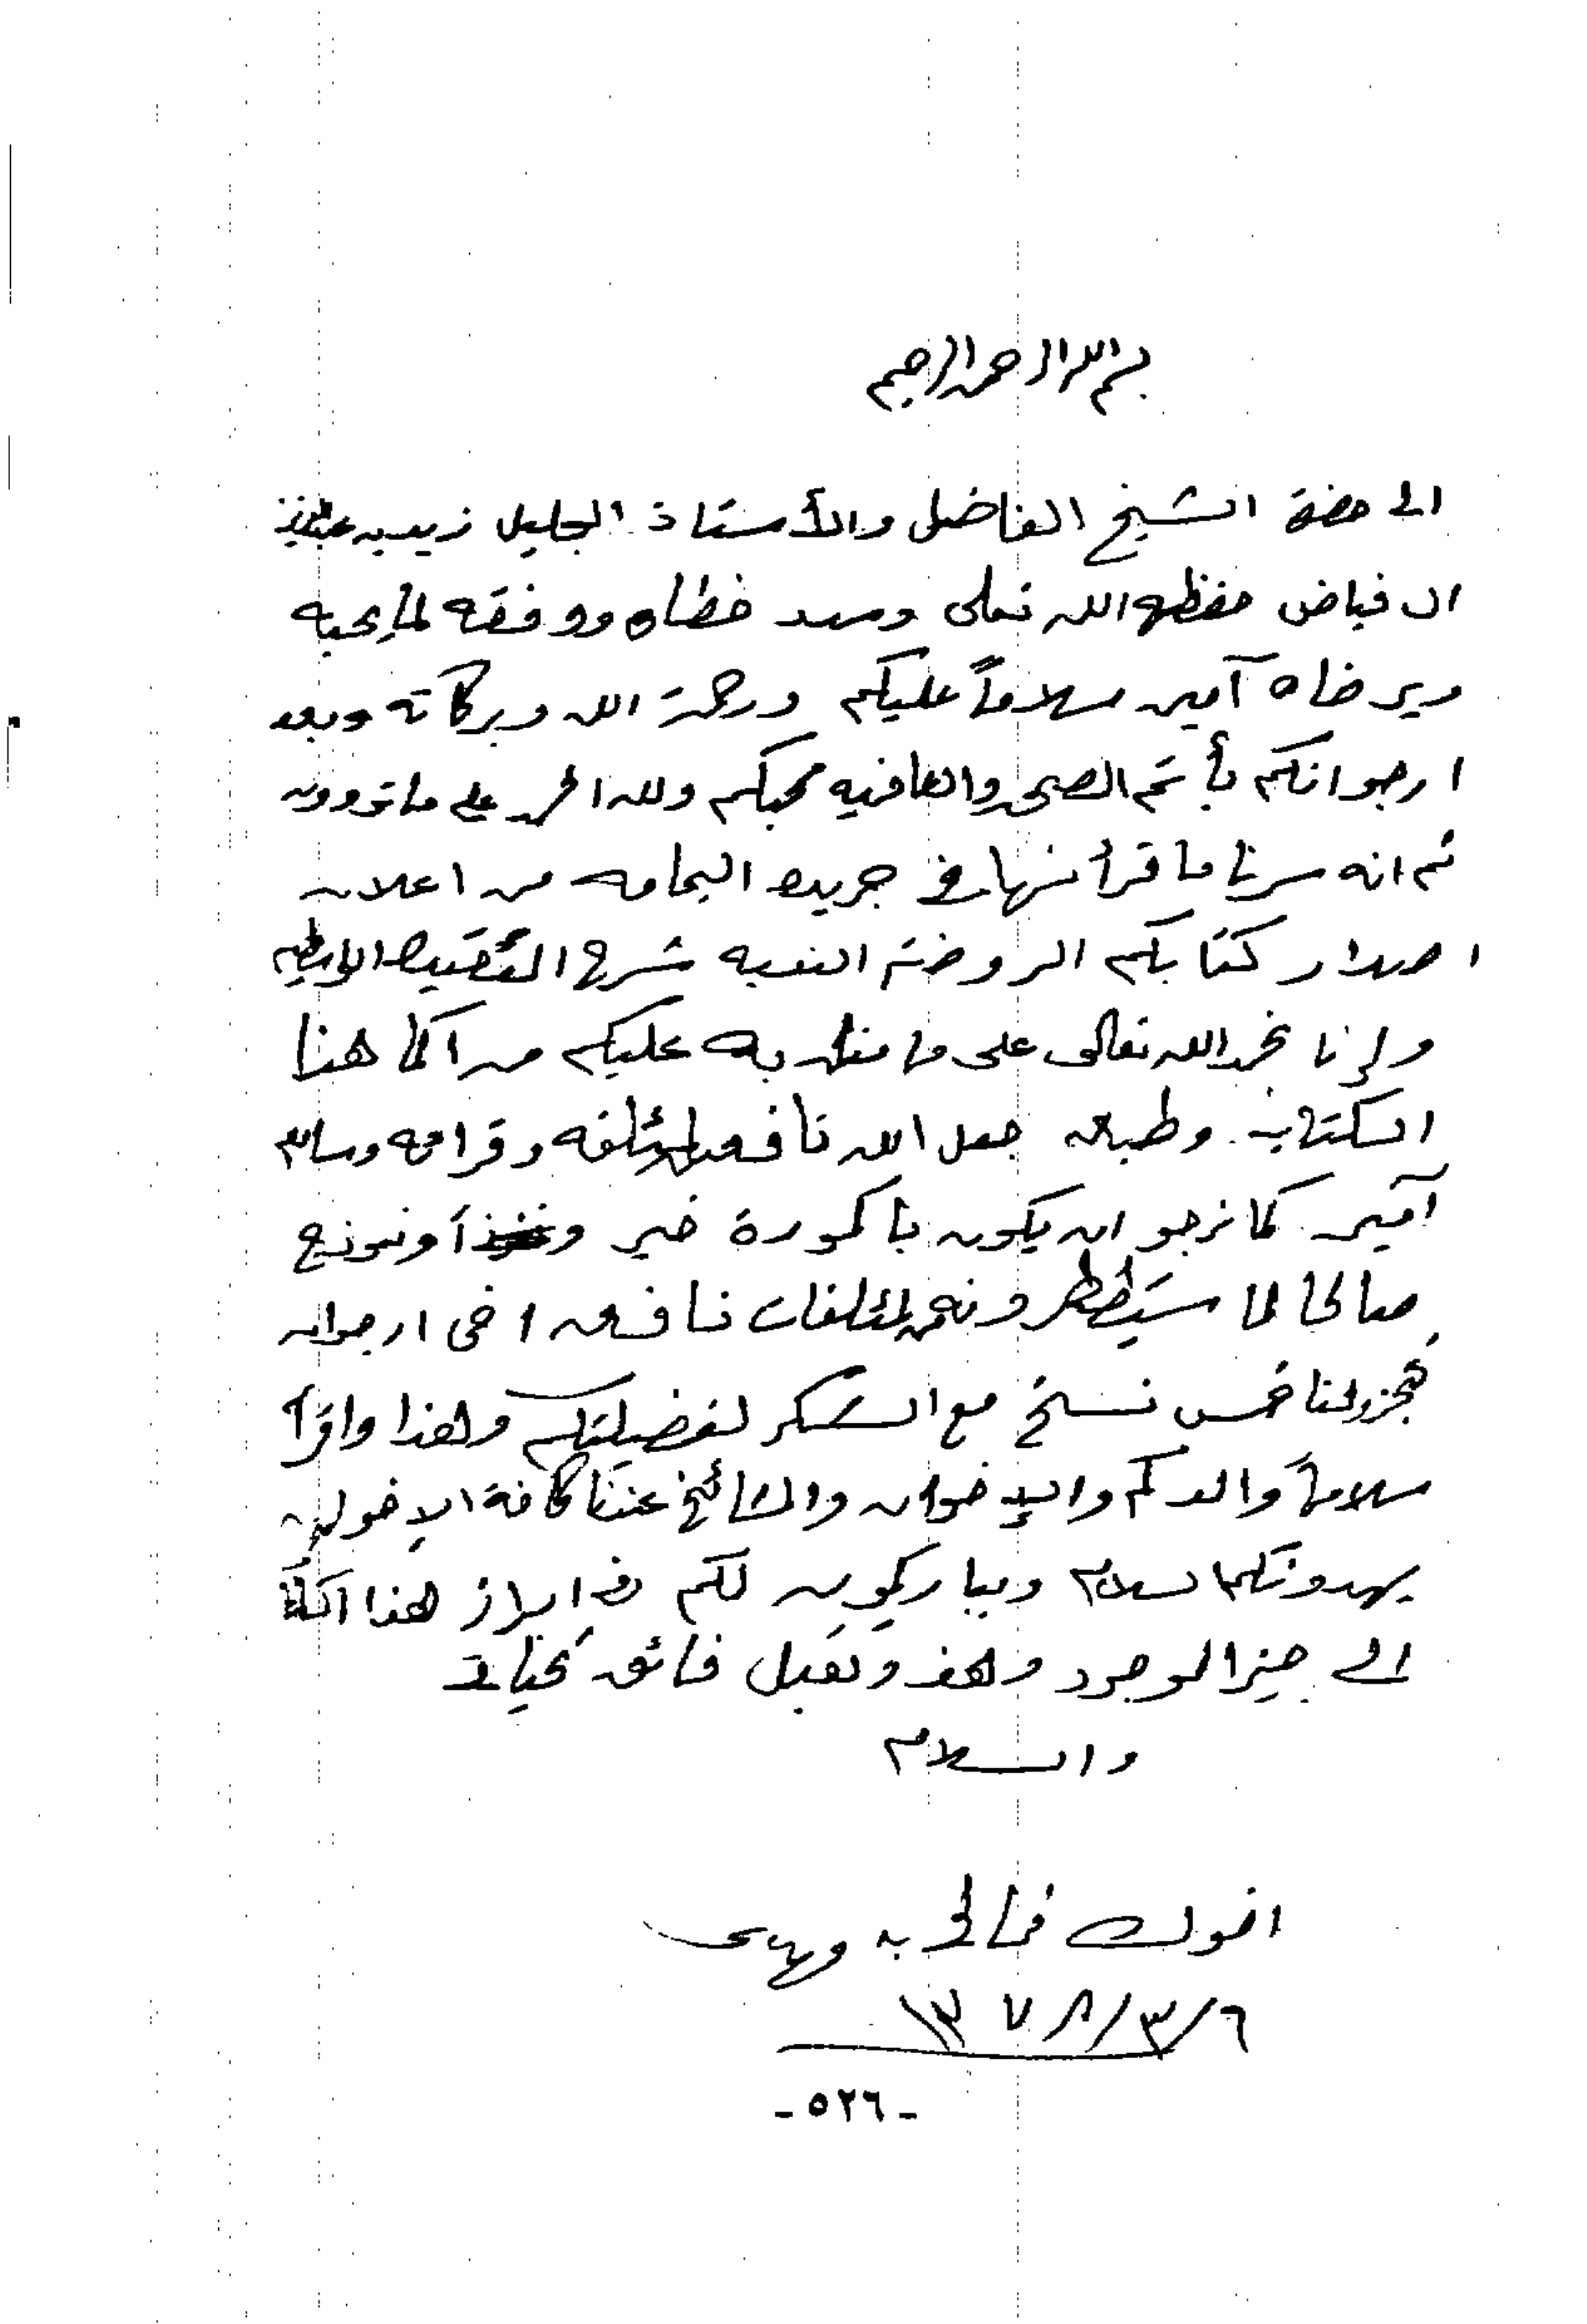 بسم الله الرحمن الرحيم
الى حضرة الشيخ الفاضل والأستاذ الجليل زيد بن عبدالعزيز
ال فياض حفظه الله تعلى وسدد خطاه ووفقه لما يحبه
ويرضاه آمين سلاماً عليكم ورحمة الله وبركاته وبعد
ارجوا انكم بأتم الصحه والعافيه محبكم ولله الحمد على ما تودون
ثم انه سرنا ما قرأنها في جريده اليمامه من اعلان
اصدار كتابكم الروضة النديه شرح العقيده الواسطيه
وإنا نحمد الله تعالى على ما من به عليكم من اكمال هذا
الكتاب وطبعه جعل الله نافعا لمؤلفه وقراءه وسامعه
آمين كما نرجو ان يكون باكورة خير ونموذج
صالحا لما ستسطرونه من مؤلفات نافعه اخي ارجوا ان
تحجز لنا خمس نسخ مع الشكر لفضيلتكم وهذا واقرأ
سلامنا والدكم والإخوان والمشائخ عندنا كافة الإخوان
يهدونكم السلام ويباركون لكم في ابراز هذا الكتاب
الى حيز الموجود وهذ وتقبل فائق تحياتي
والسلام
اخوك فالح بن مهدي
٦/٣/١٣٧٨
-٥٢٦-